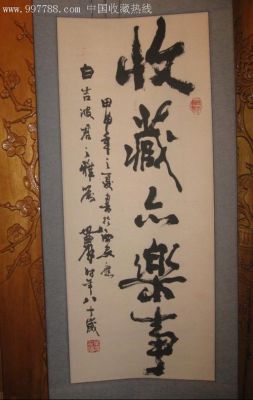 www.997788.com 中国收藏热线
收藏亦樂事
甲申年之夏書於西安應
白吉波君之雅屬 时年八十歲